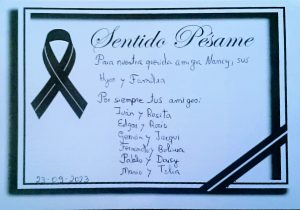 Sentido Pésame
Para nuestra querida amiga Nancy, sus
Hijos y Familia
Por siempre tus amigos:
Iván y Rosita
Edgar y Rocio
Germán y Jacqui
Fernando y Bolivia
Pablo y Daisy
Mario y
23-09-2023